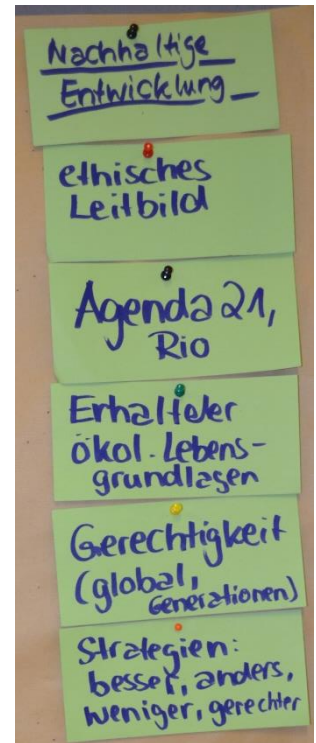 Nachhaltige
Entwicklung
ethisches
Leitbild
Agenda 21,
Rio
Erhalt der
ökol. Lebens-
grundlagen
Gerechtigkeit
(global,
Generationen)
Strategien:
besser, anders,
weniger, gerechter